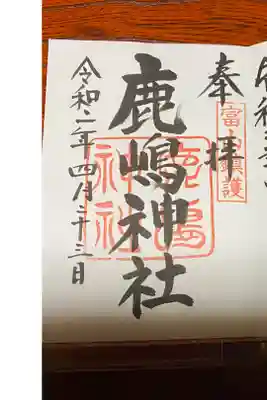 奉拝
富山鎮護
鹿嶋神社
鹿嶋神社
令和二年四月二十三日